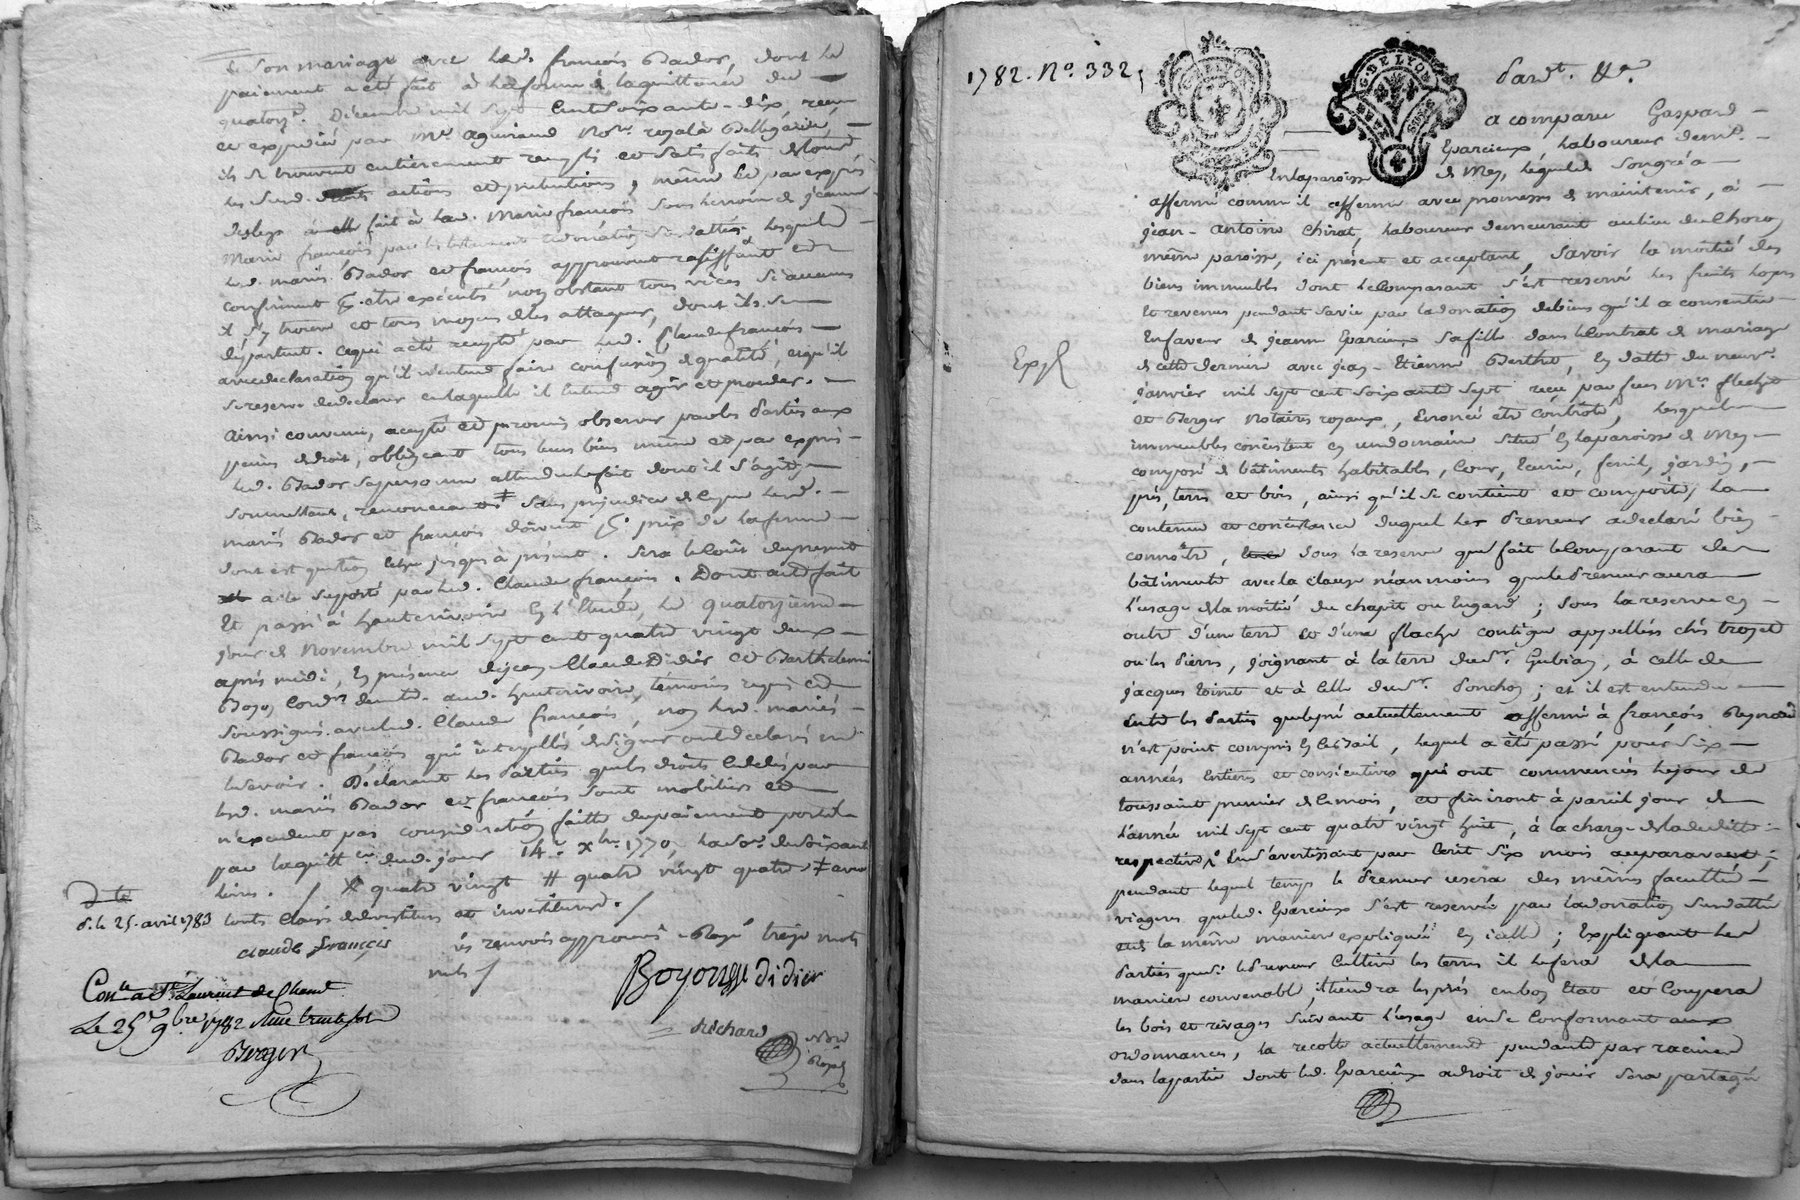 Son mariage avec led. françois Bador, dont le
paiement a été fait à la forme de la quittance du
quatorze. Décembre mil Sept Cent Soixante-dix, recu
et expédié par Me. Noe. royal à Bellegarde,
ils se trouvent entierement remplis et satisfaits de tous
les Susd. actions et prétentions, même et par exprès
fait à lad. Marie françois Sous le nom de jeanne
Marie françois par les testament et donation Susdattés, lesquels
led. mariés Bador et françois approuvent ratiffient et
confirment pr. etre exécutés nonobstant tous vices si aucuns
s'y trouve et tous moyens de les attaquer, dont ils se
départent. Ce qui a été accepté par led. Claude françois
avec declaration qu'il n'entend faire confusion de qualité, et qu'il
se reserve de declarer en laquelle il entend agir et proceder.
Ainsi convenu, accepté et promis observer par les Parties aux
peines de droit, obligeant tous leurs biens même et par exprès
led. Bador sa personne attendu le fait dont il s'agit,
Soumettant, renonceant. Sans préjudice de ce que led.
mariés Bador et françois doivent pr. prix de la ferme
dont est question echu jusques à présent. Sera le Coût du present
a été Suporté par led. Claude françois. Dont acte fait
Et passé à hauterivoire En l'Etude, le quatorzieme
jour de Novembre mil Sept cent quatre vingt deux
après midi, En présence de jean Claude Didier et Barthelemi
Boyon, Cordr. demts. aud. hauterivoire, témoins requis et
soussignés avec led. Claude françois, non led. mariés
Bador et françois qui interpellés de signer ont declaré ne
le savoir. Déclarant les Parties que les droits Cedés par
led. mariés Bador et françois Sont mobiliers et
n'excedent pas consideration faitte du paiement porté
par la quittce. dud. jour 14e. Xbre 1770, la Somme de Soixante
livres. / X quatre vingt # quatre vingt quatre ≠ avec
touts Clauses de devestiture et investiture. /
D. le 25. avril 1783
claude françois
ces renvois approuvés Rayé treize mots
nuls /
Boyon Didier
Conlé. à St. Laurent de Chamt.
Le 25e 9bre 1782
Berger
Richard
Nore
Royal
1782. No. 332.
Pardt. &a.
G. DE LYON
G. DE LYON
a comparu Gaspard
Eparcieux laboureur demt.
En la paroisse de Meys, lequel de Son gré a
affermé comme il afferme avec promesse de maintenir, à
jean-antoine Chirat, laboureur demeurant au lieu du Choron
même paroisse, ici présent et acceptant, Savoir la moitié des
biens immeubles dont le Comparant s'est reservé les fruits
et revenus pendant Sa vie par la donation de biens qu'il a consentie
En faveur de jeanne Eparcieux Sa fille dans le Contrat de mariage
de cette derniere avec jean-Etienne Berthet, En datte du neuf
janvier mil Sept cent Soixante Sept reçu par feus Mes. flechet
et Berger Notaires royaux, Enoncé être contrôlé, lesquels
immeubles consistent en un domaine Situé En la paroisse de Meys
composé de bâtiments habitables, Cour, Ecurie, fenil, jardin,
prés, terres et bois, ainsi qu'il se contient et comporte, la
contenue et consistance duquel le Preneur a declaré bien
connoître, sous la reserve que fait le Comparant des
bâtiments avec la clause néanmoins que le Preneur aura
l'usage de la moitié du chapit ou Engard; Sous la reserve en
outre d'une terre et d'une flache contigue appellées chés trozet
ou les Pierres, joignant à la terre du Sr. Gubian, à celle de
jacques Toint et à Celle du Sr. Ponchon; et il est entendu
Entre les Parties que le pré actuellement affermé à françois Reynard
n'est point compris En le Bail, lequel a été passé pour Six
années Entieres et consécutives qui ont commencées le jour de
toussaint premier de ce mois, et finiront à pareil jour de
l'année mil Sept cent quatre vingt huit, à la charge de la dedite
respective En s'avertissant par Ecrit Six mois auparavant;
pendant lequel temps le Preneur usera des mêmes facultés
viageres que led. Eparcieux s'est reservées par la donation Susdattée
et de la même maniere expliquée En icelle; Expliqueant les
Parties que Si le Preneur Cultive les terres il le fera de la
maniere convenable, il tiendra les prés en bon Etat et Coupera
les bois et rivages Suivant l'usage en se Conformant aux
ordonnances, la recolte actuellement pendante par racines
dans la partie dont led. Eparcieux a droit de jouir Sera partagée